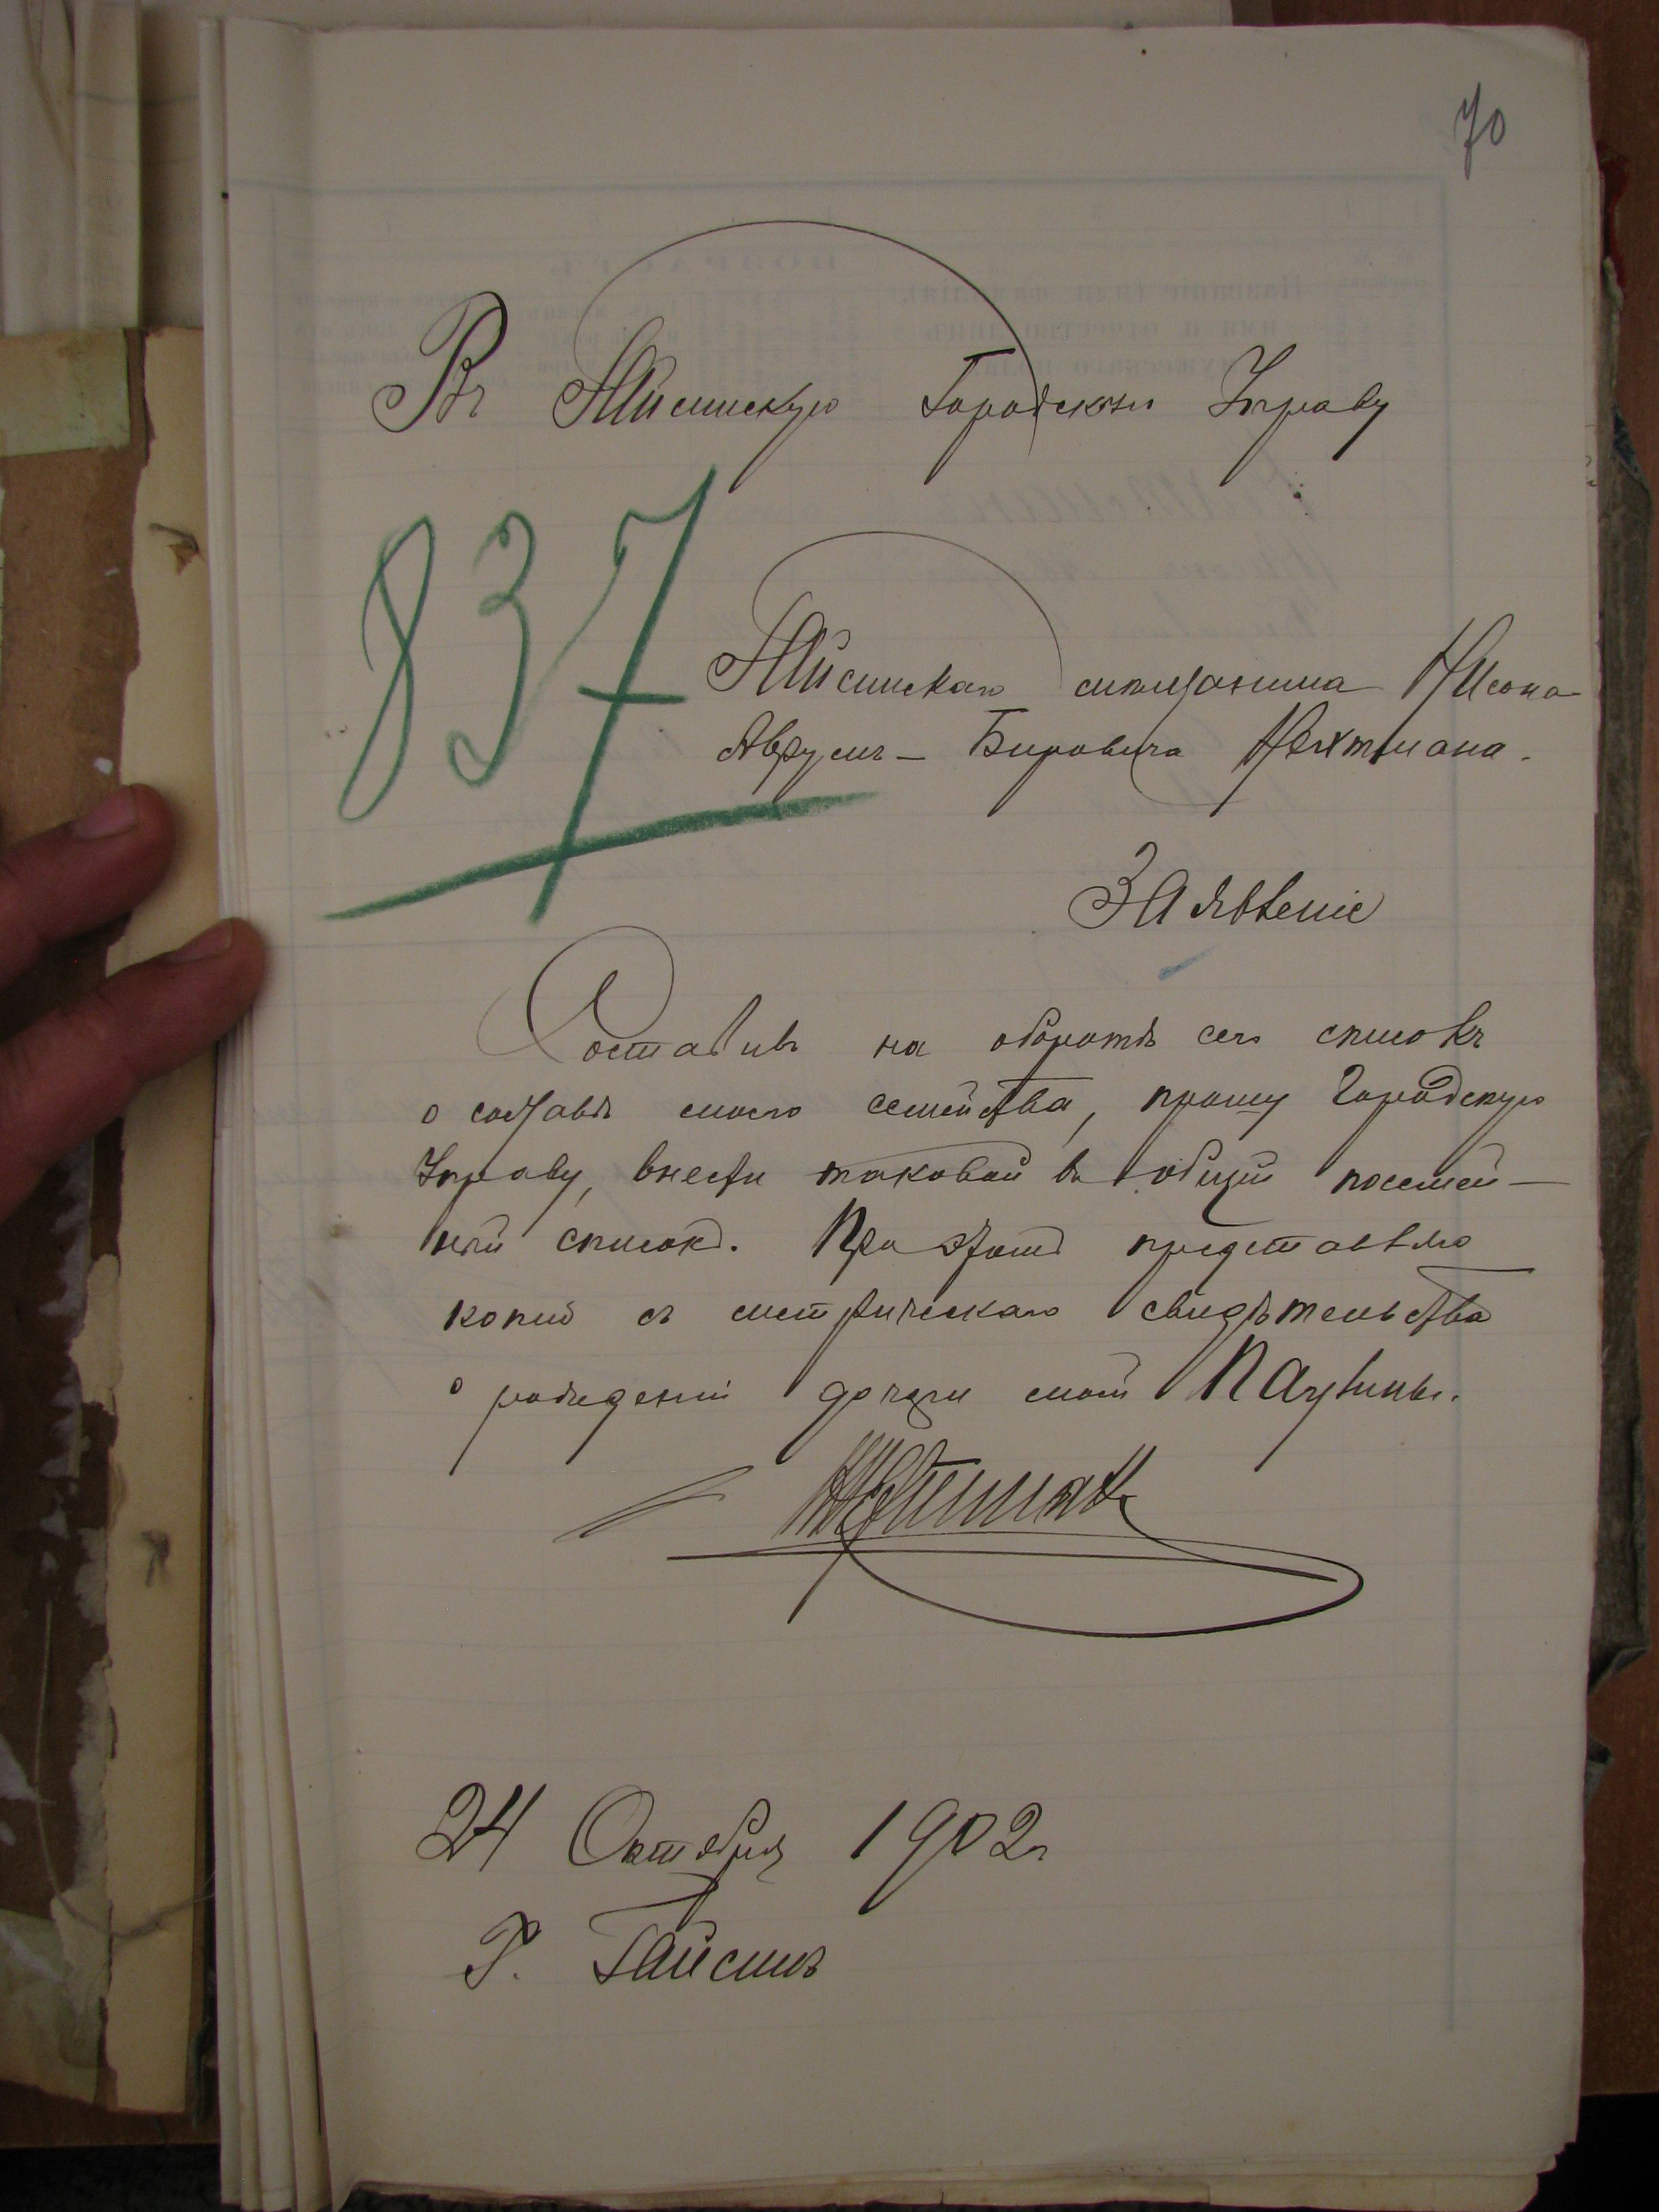 70
Въ Гайсинскую Городскую Управу
837
Гайсинскаго мѣщанина Нисона
Аврумъ-Беровича Нехтмана.
Заявленіе
Составивъ на оборотѣ сего списокъ
о составѣ моего семейства, прошу Городскую
Управу, внести таковой въ общій посемей-
ный списокъ. При этомъ представляю
копію съ метрическаго свидѣтельства
о рожденіи дочери моей Паулины.
24 Октября 1902 г
Г. Гайсинъ